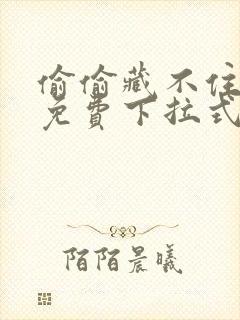 偷偷藏不住
免費下拉式
陌陌晨曦